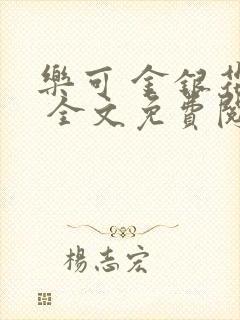 樂可 金銀花
全文免費閱
楊志宏